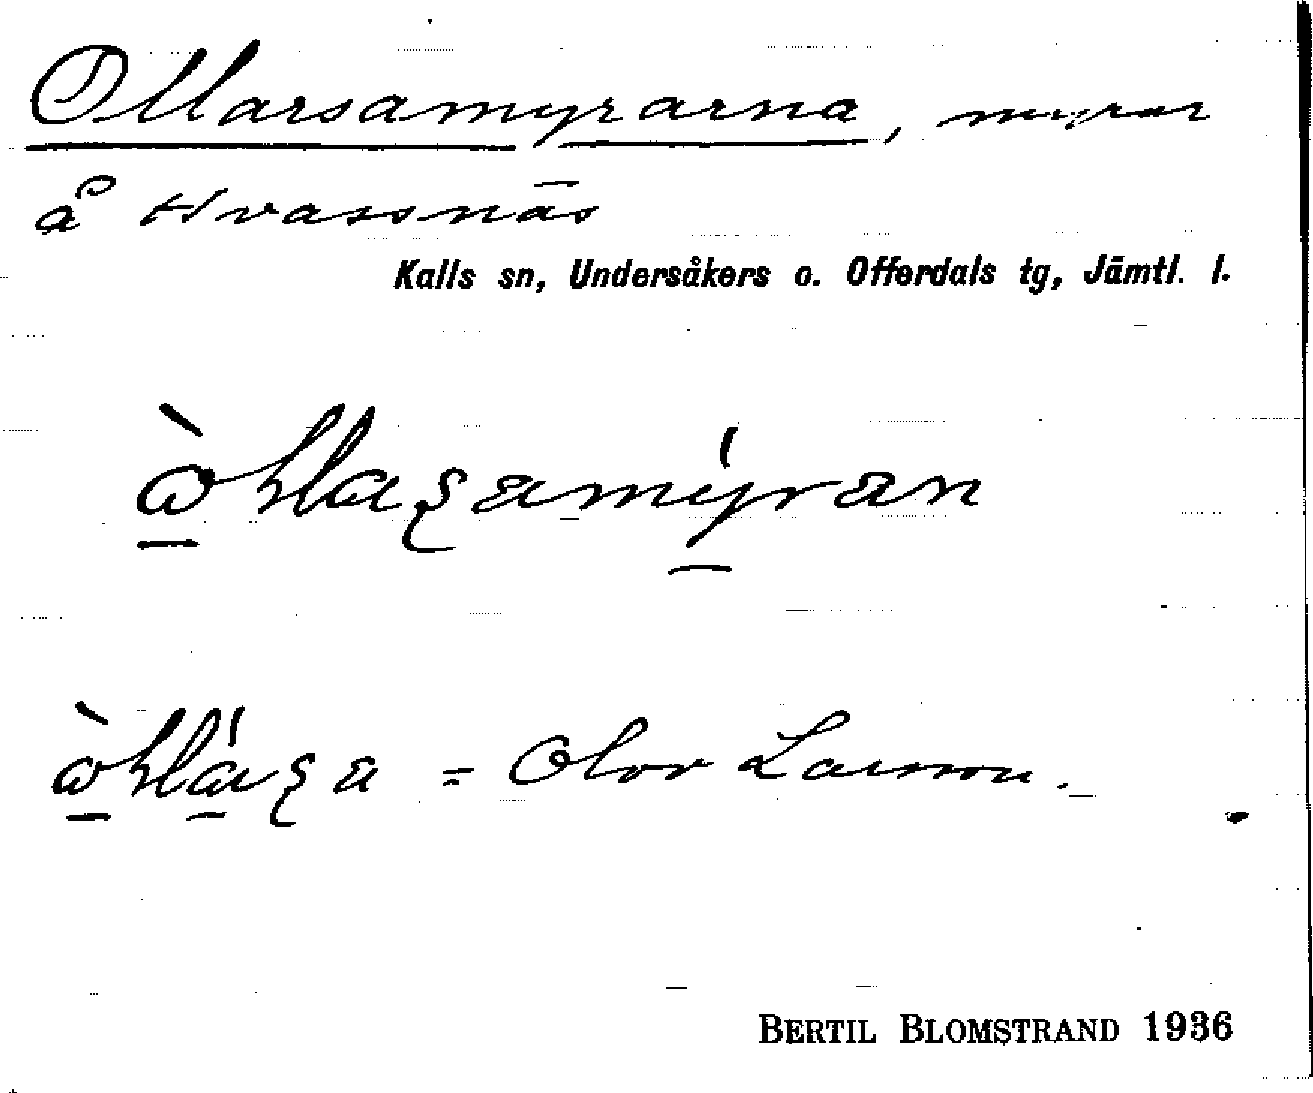 Ollarsamyrarna, myrar
å Hvassnäs
Kalls sn, Undersåkers o. Offerdals tg, Jämtl. l.
= Olov Larsson.
BERTIL BLOMSTRAND 1936